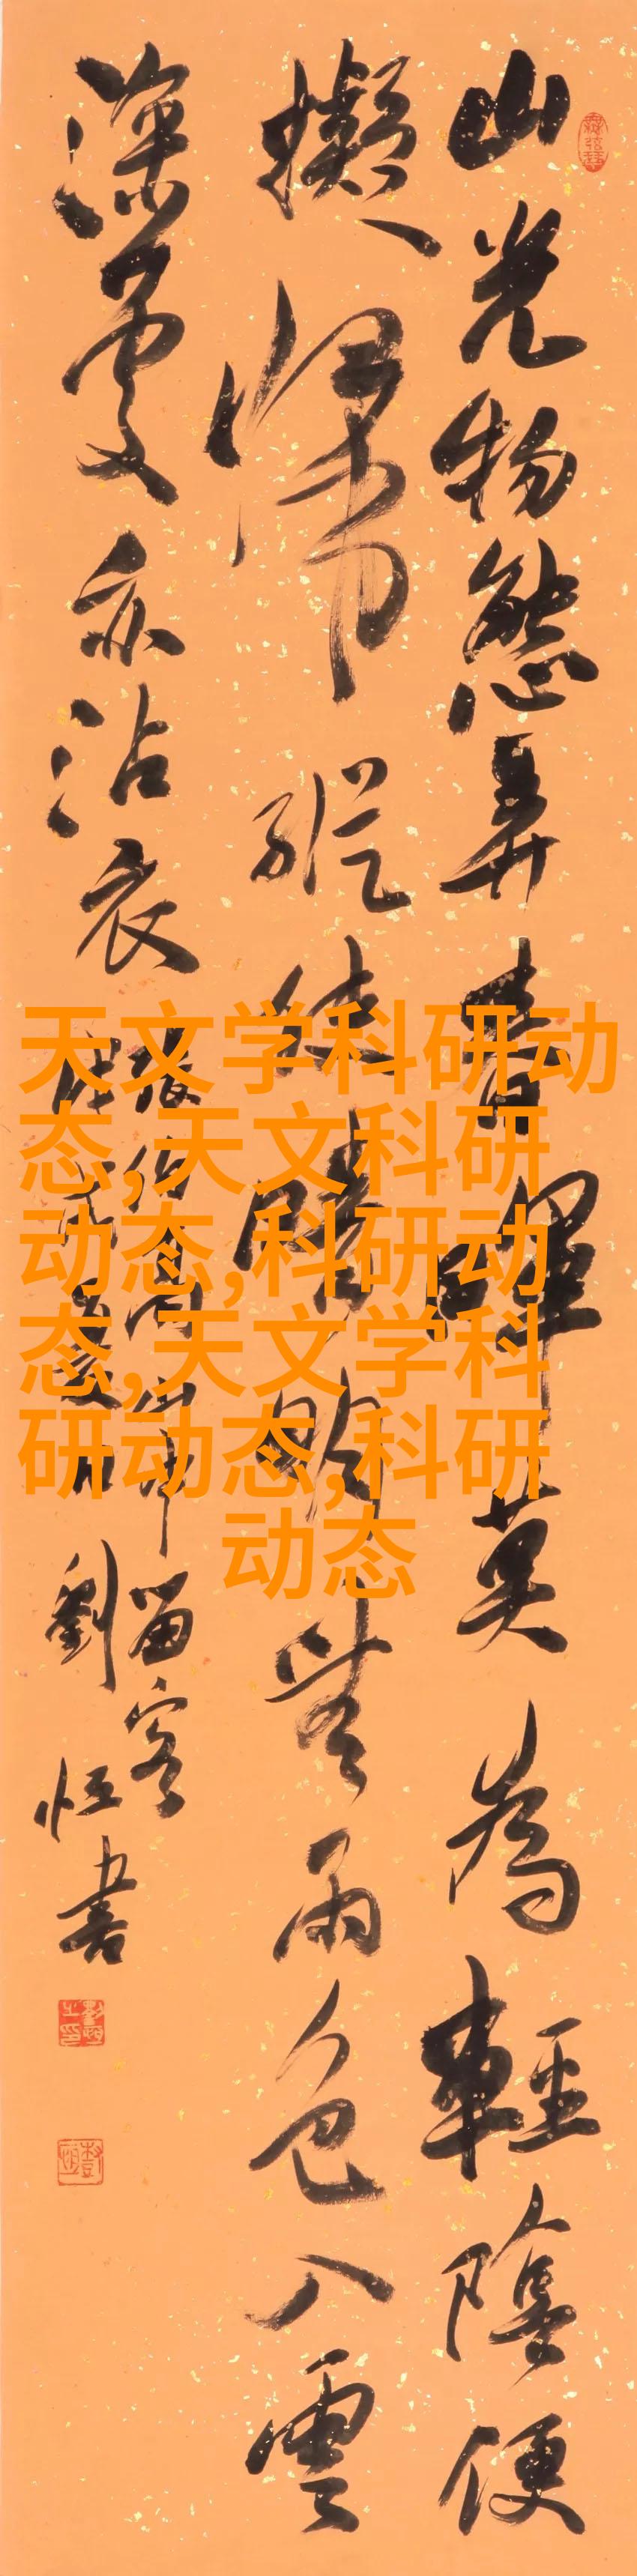 山光物態弄春暉莫為輕陰便
擬歸縱使晴明無雨色入雲
深處亦沾衣
張伯高山中留客
劉恒書
天文学科研动
态,天文科研
动态,科研动
态,天文学科
研动态,科研
动态